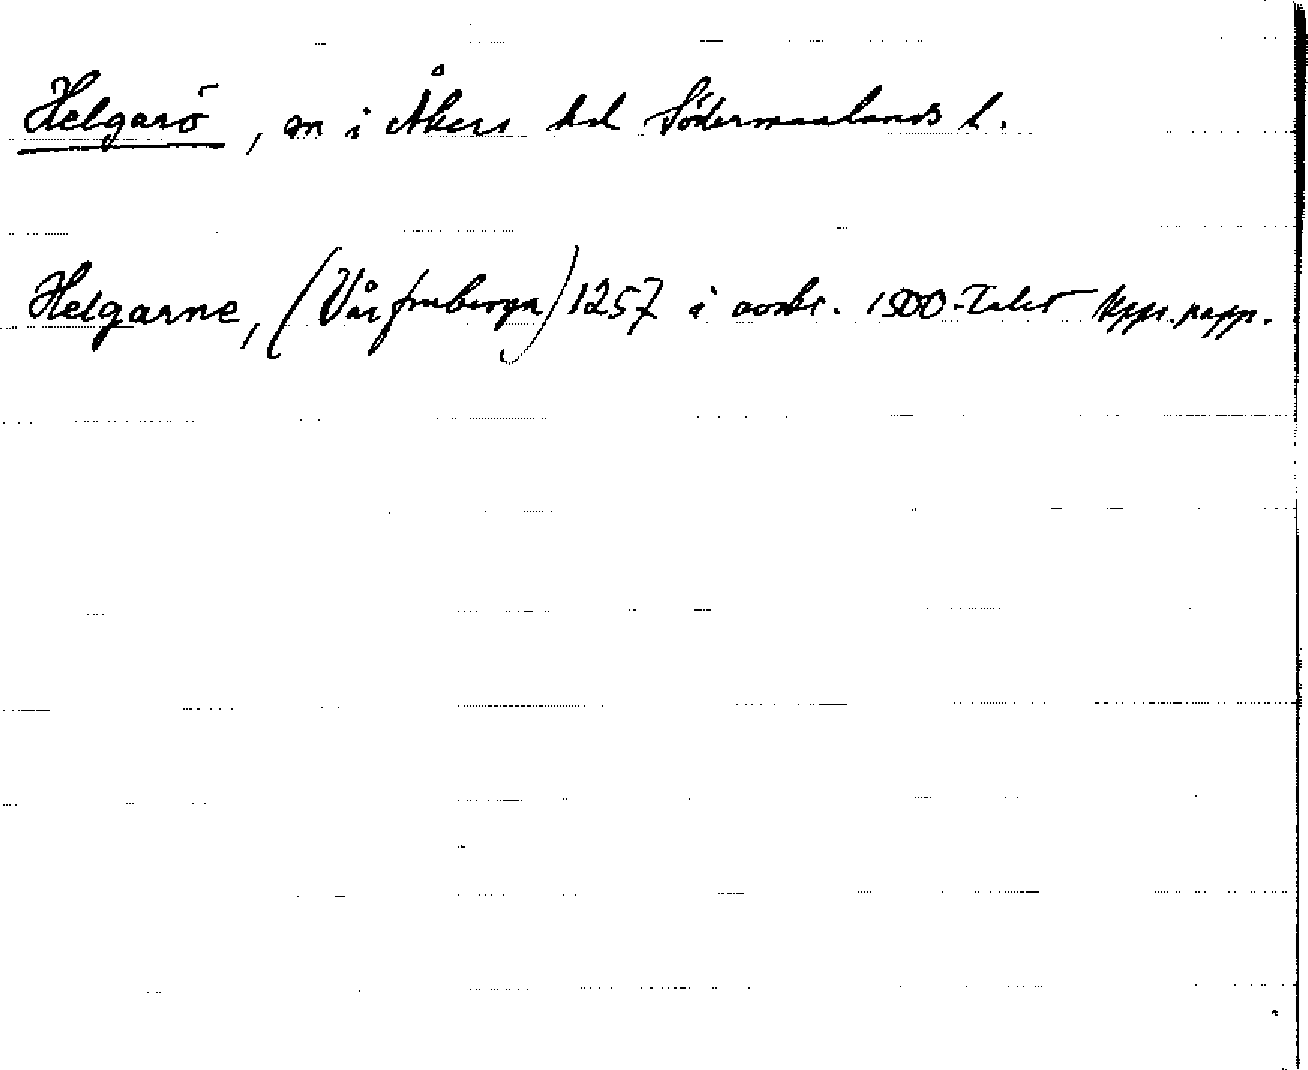 Helgarö, en i Åkers hd Södermanlands l.
Helgarne, (Vårfruberga) 1257 i avskr. 1500-talet papp.